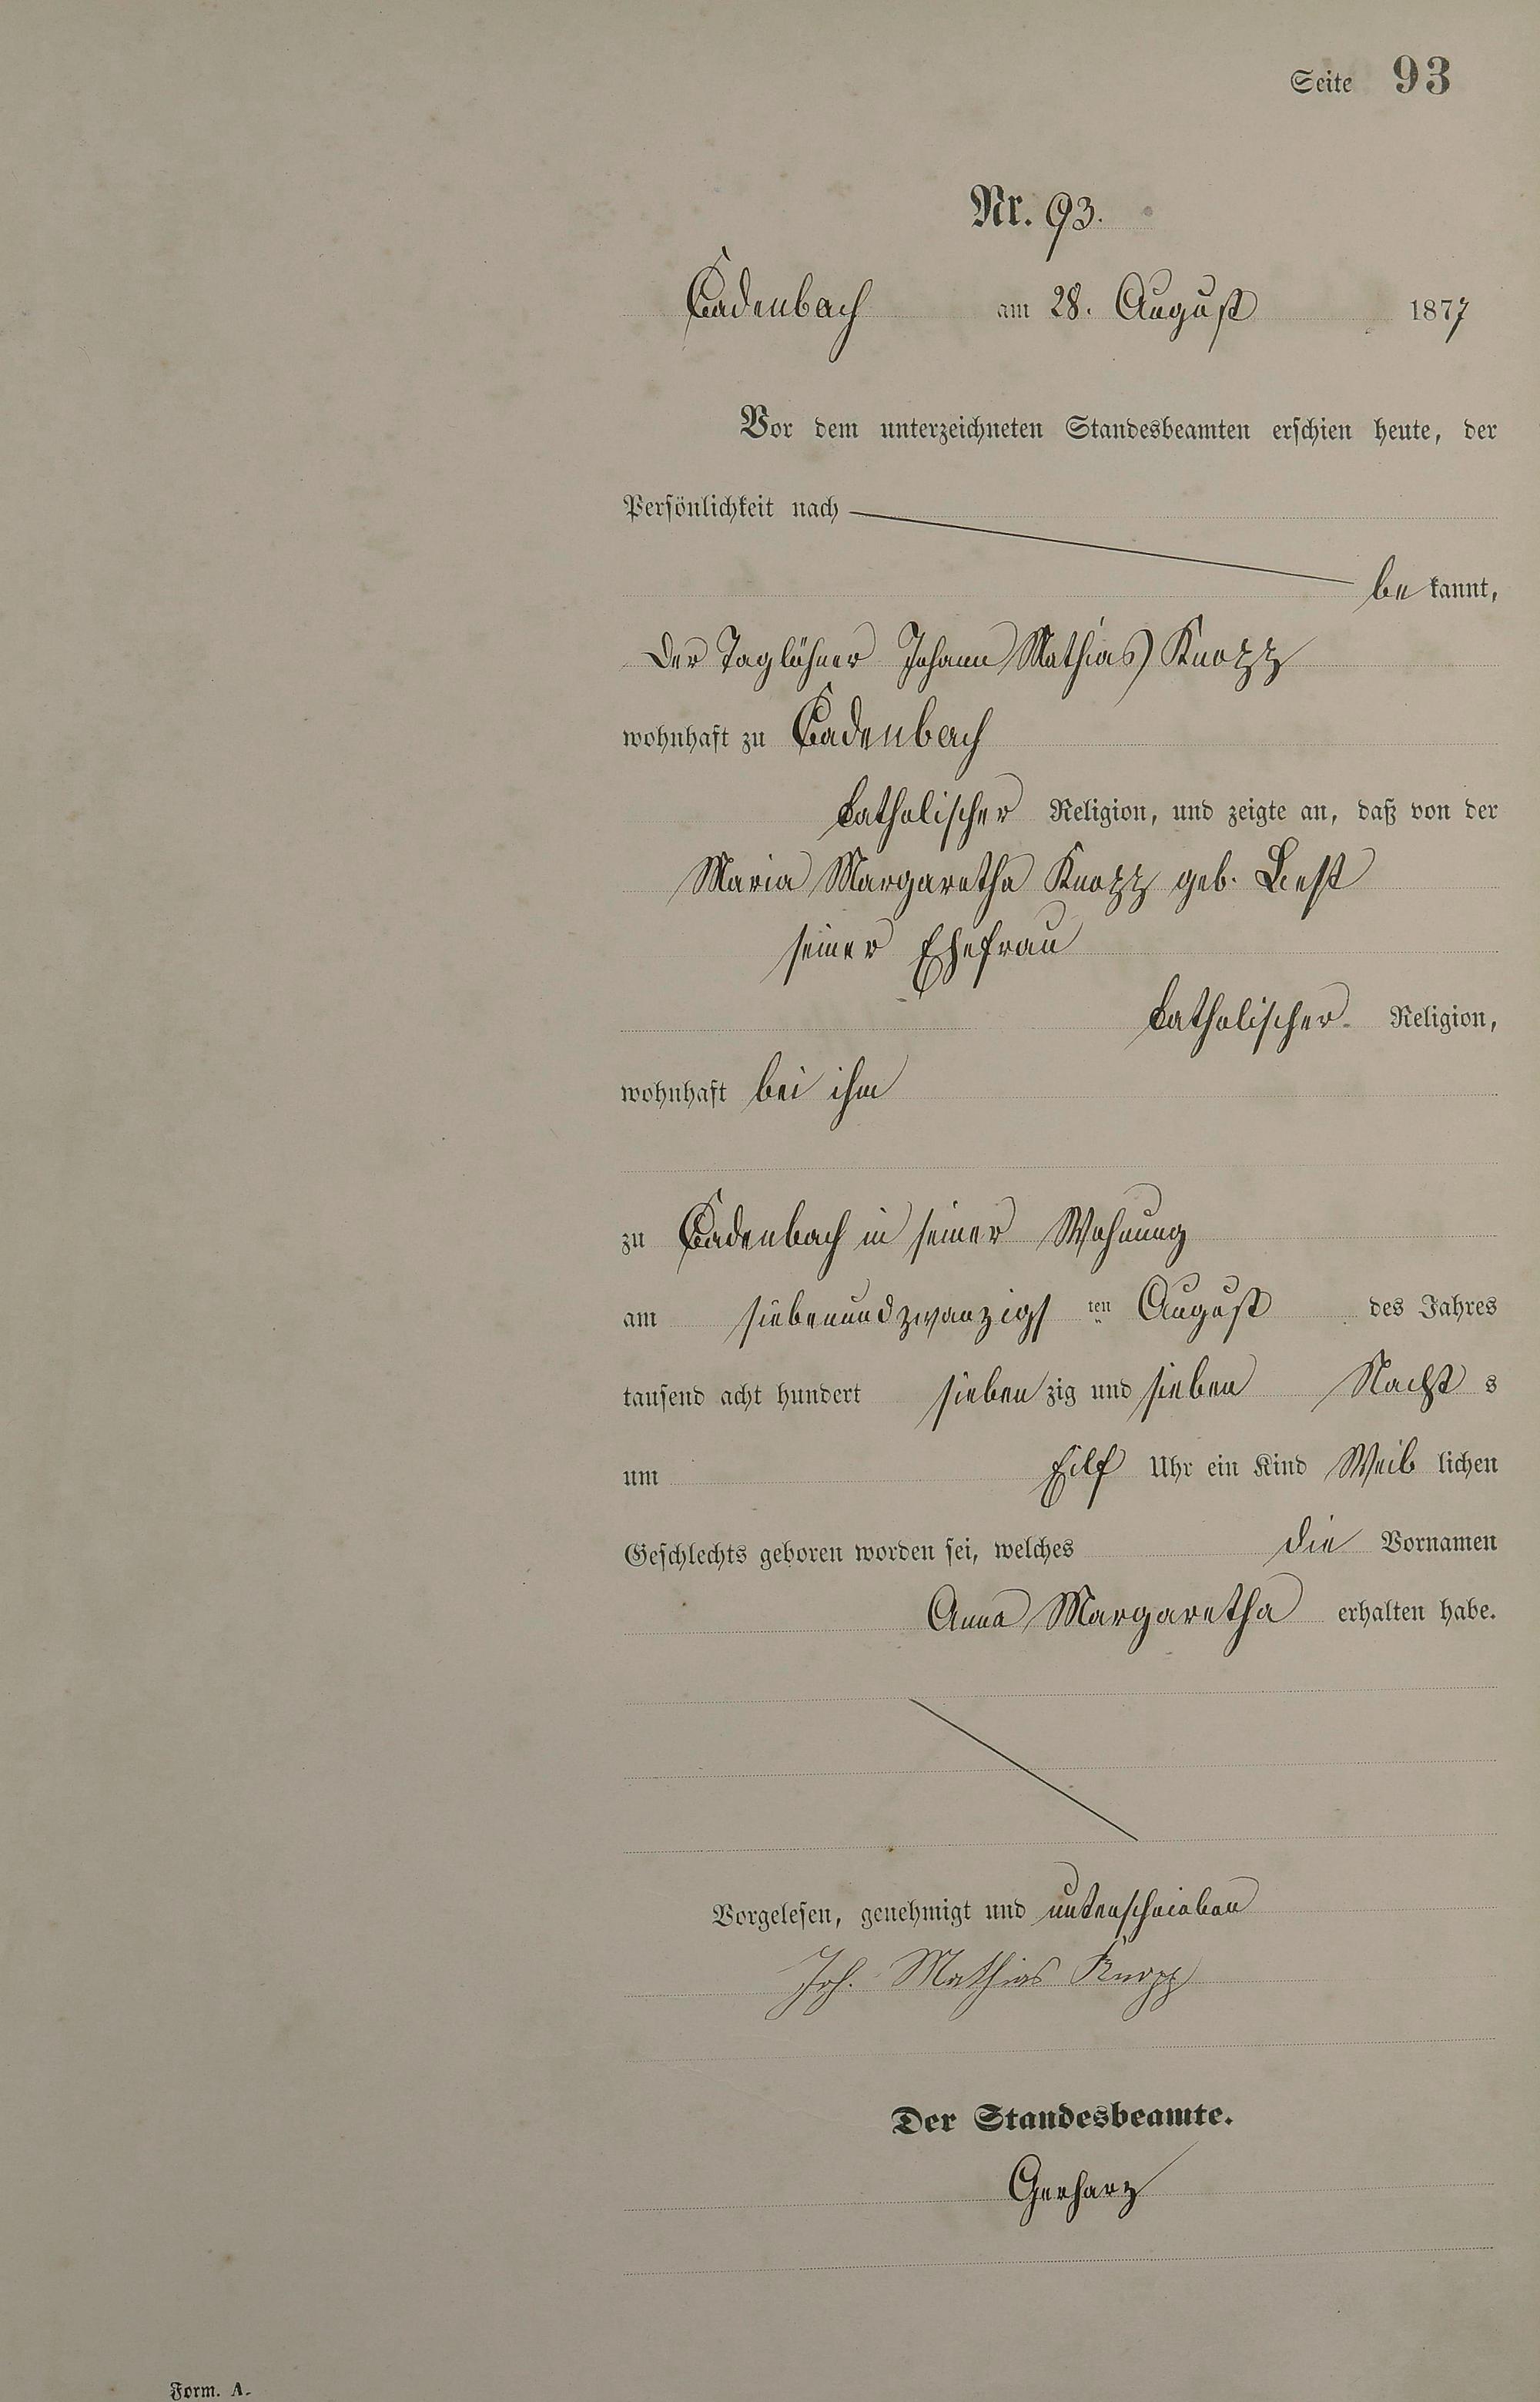 Seite 93
Nr. 93.
Cadenbach am 28. August 1877
Vor dem unterzeichneten Standesbeamten erschien heute, der
Persönlichkeit nach
be kannt,
der Taglöhner Johann Mathias Knopp
wohnhaft zu Cadenbach
katholischer Religion, und zeigte an, daß von der
Maria Margaretha Knopp geb. Best
seiner Ehefrau
katholischer Religion,
wohnhaft bei ihm
zu Cadenbach in seiner Wohnung
am siebenundzwanzigs ten August des Jahres
tausend acht hundert sieben zig und sieben Nacht s
um Eilf Uhr ein Kind Weib lichen
Geschlechts geboren worden sei, welches die Vornamen
Anna Margaretha erhalten habe.
Vorgelesen, genehmigt und unterschrieben
Joh. Mathias Knopp
Der Standesbeamte.
Gerharz
Form. A.